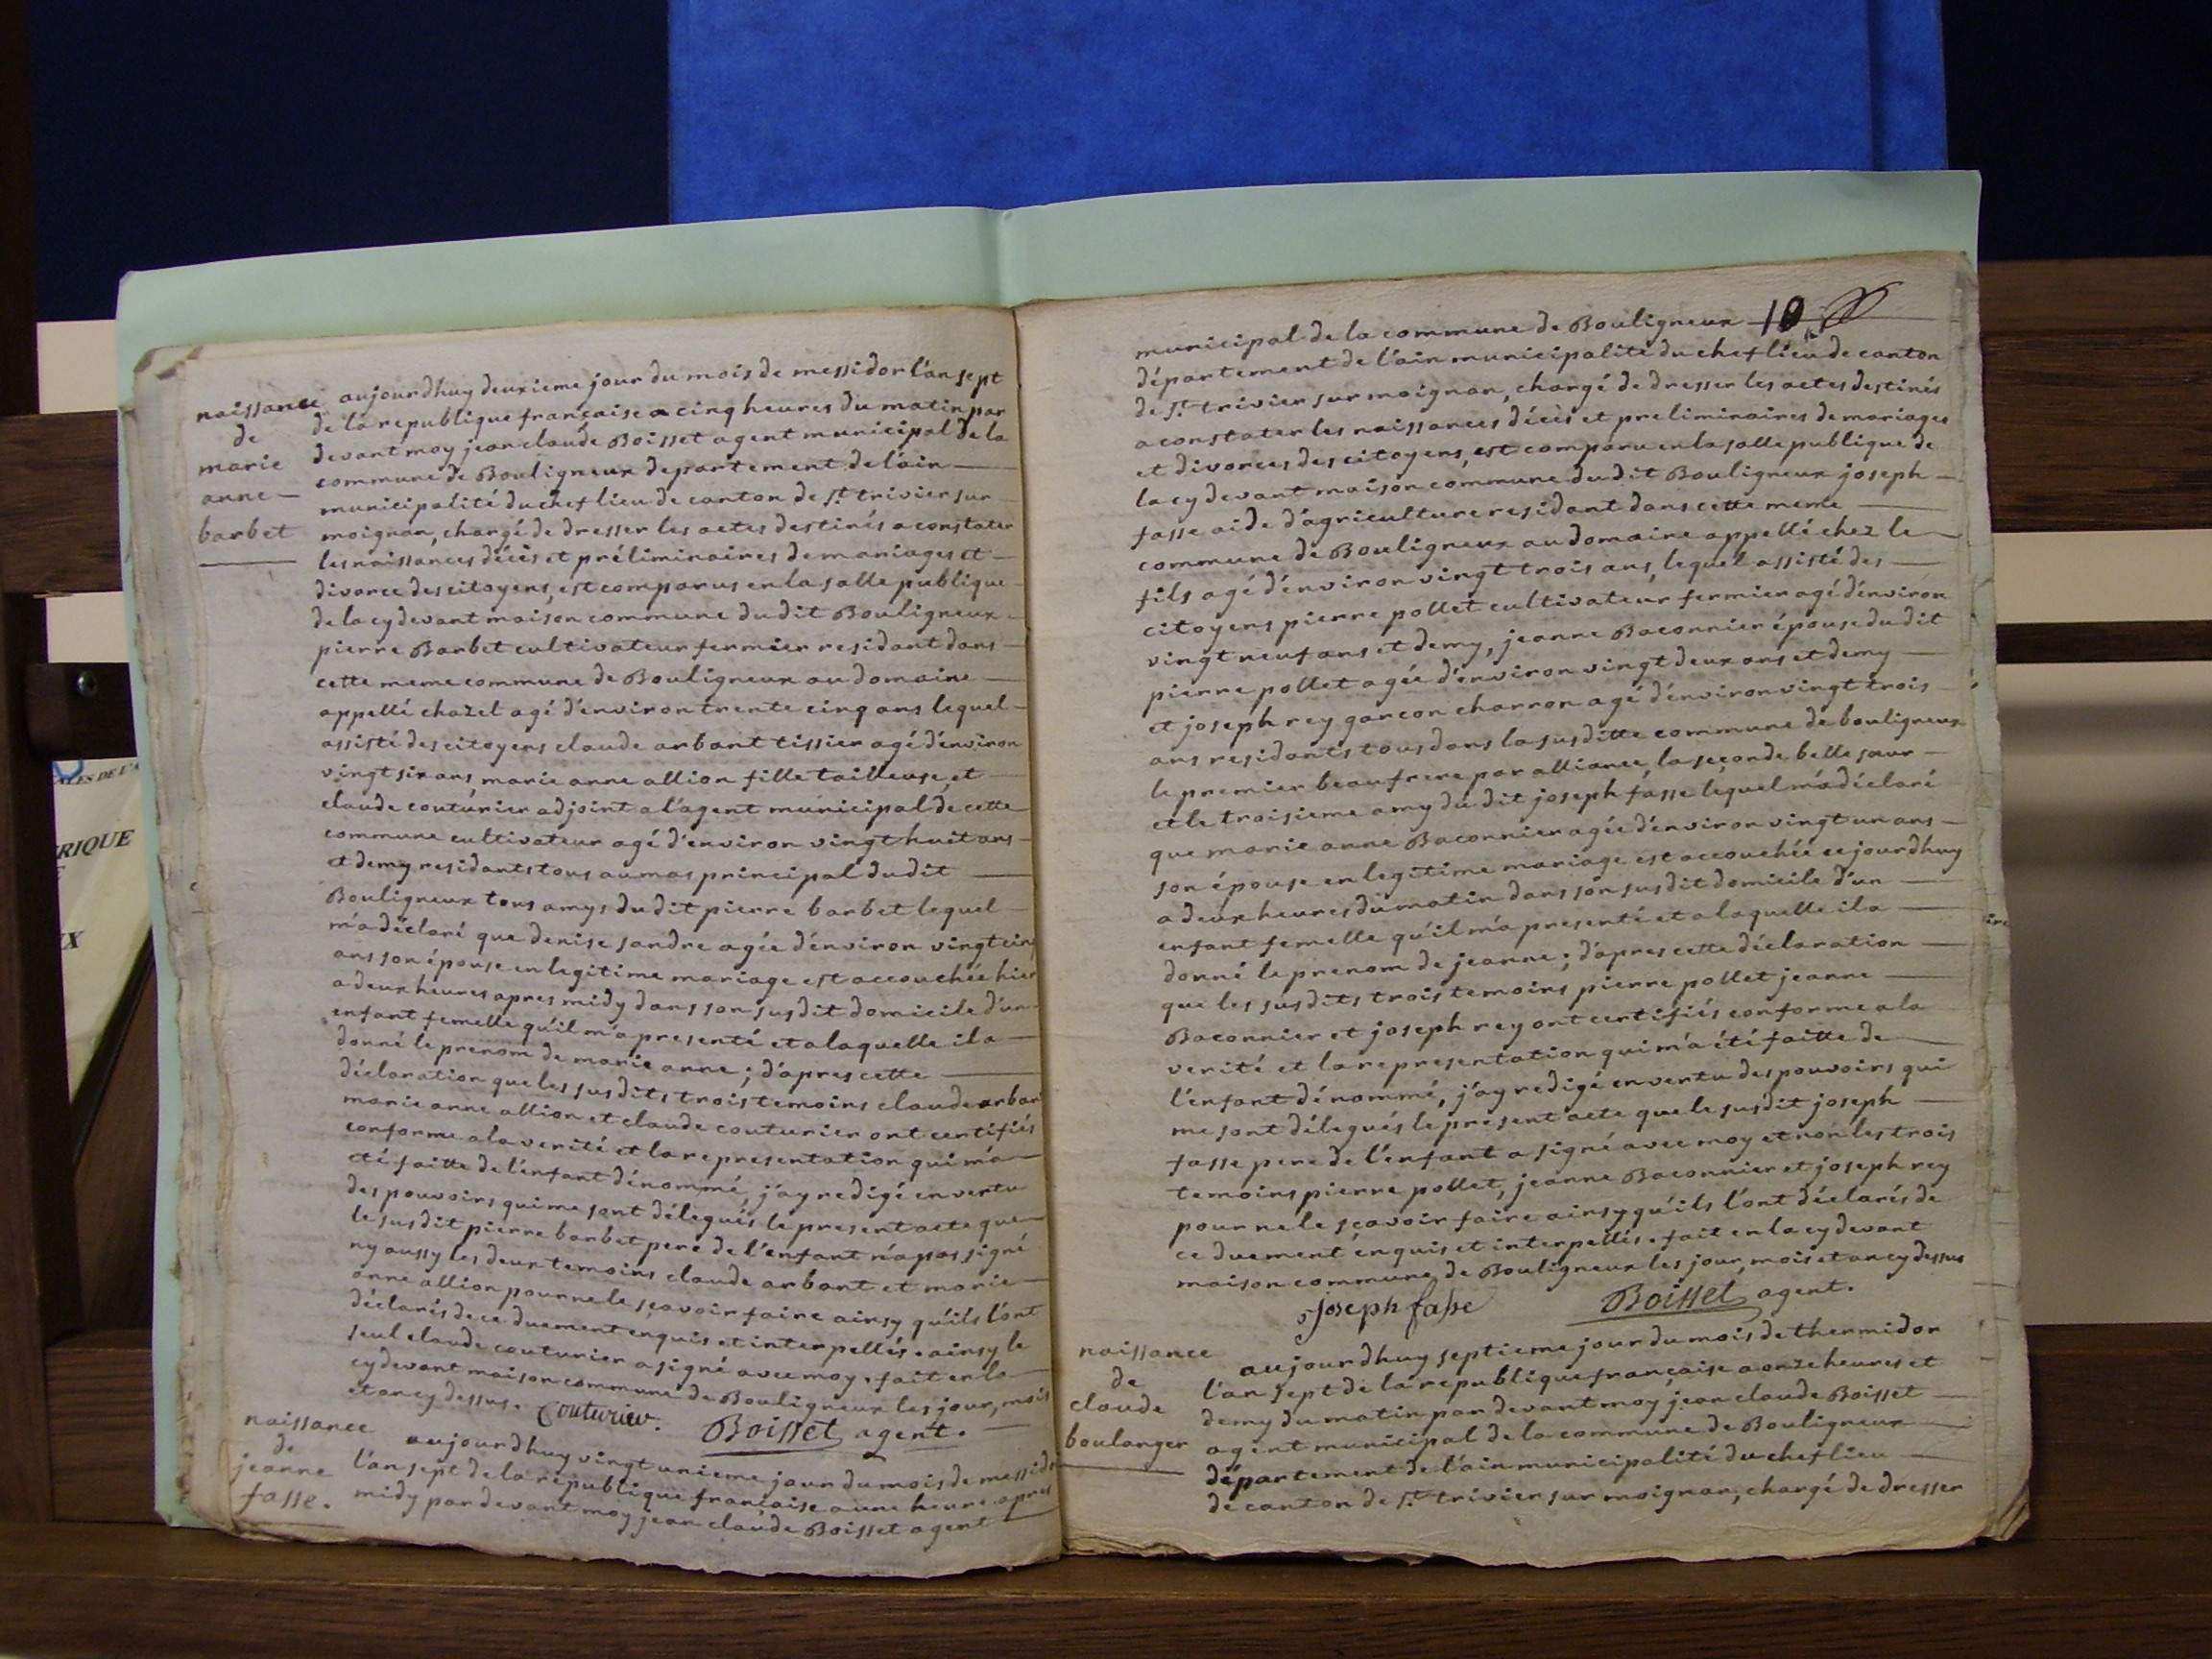 naissance
de
marie
anne
barbet
aujourdhuy deuxieme jour du mois de messidor l'an sept
de la republique française a cinq heures du matin par
devant moy jean claude Boisset agent municipal de la
commune de Bouligneux departement de l'ain
municipalité du chef lieu de canton de St. trivier sur
moignan, chargé de dresser les actes destinés a constater
les naissances décès et préliminaires de mariages et
divorce des citoyens, est comparus en la salle publique
de la cy devant maison commune du dit Bouligneux
pierre Barbet cultivateur fermier residant dans
cette meme commune de Bouligneux au domaine
appellé chazel agé d'environ trente cinq ans lequel
assisté des citoyens claude arbant tissier agé d'environ
vingt six ans marie anne allion fille tailleuse, et
claude couturier adjoint a l'agent municipal de cette
commune cultivateur agé d'environ vingt huit ans
et demy residants tous au mas principal du dit
Bouligneux tous amys du dit pierre barbet lequel
m'a déclaré que denise sandre agée d'environ vingt cinq
ans son épouse en legitime mariage est accouchée hier
a deux heures apres midy dans son susdit domicile d'un
enfant femelle qu'il m'a presenté et a laquelle il a
donné le prenom de marie anne ; d'apres cette
déclaration que les susdits trois temoins claude arban
marie anne allion et claude couturier ont certifiés
conforme a la verité et la representation qui m'a
été faitte de l'enfant dénommé, j'ay redigé en vertu
des pouvoirs qui me sont délegués le present acte que
le susdit pierre barbet pere de l'enfant n'a pas signé
ny aussy les deux temoins claude arbant et marie
anne allion pour ne le sçavoir faire ainsy qu'ils l'ont
déclarés de ce duement enquis et interpellés. ainsy le
seul claude couturier a signé avec moy. fait en la
cy devant maison commune de Bouligneux les jour, mois
et an cy dessus. Couturier. Boisset agent.
naissance
de
jeanne
fasse.
aujourdhuy vingt unieme jour du mois de messido
l'an sept de la republique française a une heure apres
midy par devant moy jean claude Boisset agent
10
municipal de la commune de Bouligneux
département de l'ain municipalité du chef lieu de canton
de St. trivier sur moignan, chargé de dresser les actes destinés
a constater les naissances décès et preliminaires de mariages
et divorces des citoyens, est comparu en la salle publique de
la cy devant maison commune du dit Bouligneux joseph
fasse aide d'agriculture residant dans cette meme
commune de Bouligneux au domaine appellé chez le
fils agé d'environ vingt trois ans, lequel assisté des
citoyens pierre pollet cultivateur fermier agé d'environ
vingt neuf ans et demy, jeanne Baconnier épouse du dit
pierre pollet agée d'environ vingt deux ans et demy
et joseph rey garcon charron agé d'environ vingt trois
ans residants tous dans la susditte commune de bouligneux
le premier beaufrere par alliance, la seconde belle sœur
et le troisieme amy du dit joseph fasse lequel m'a déclaré
que marie anne Baconnier agée d'environ vingt un ans
son épouse en legitime mariage est accouchée ce jourdhuy
a deux heures du matin dans son susdit domicile d'un
enfant femelle qu'il m'a presenté et a laquelle il a
donné le prenom de jeanne ; d'apres cette déclaration
que les susdits trois temoins pierre pollet jeanne
Baconnier et joseph rey ont certifiés conforme a la
verité et la representation qui m'a été faitte de
l'enfant dénommé, j'ay redigé en vertu des pouvoirs qui
me sont délegués le présent acte que le susdit joseph
fasse pere de l'enfant a signé avec moy et non les trois
temoins pierre pollet, jeanne Baconnier et joseph rey
pour ne le sçavoir faire ainsy qu'ils l'ont déclarés de
ce duement enquis et interpellés. fait en la cy devant
maison commune de Bouligneux les jour, mois et an cy dessus
joseph fasse Boisset agent.
naissance
de
claude
boulanger
aujourdhuy septieme jour du mois de thermidor
l'an sept de la republique française a onze heures et
demy du matin par devant moy jean claude Boisset
agent municipal de la commune de Bouligneux
département de l'ain municipalité du chef lieu
de canton de St. trivier sur moignan, chargé de dresser
RIQUE